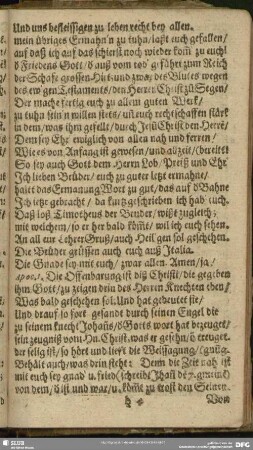 Und uns befleissigen zu leben recht bey allen.
mein übriges Ermahn'n zu tuhn / laßt euch gefallen /
auf daß ich auf das schierst noch wieder kom̃ zu euch!
d Friedens Gott / d auß vom tod' g führt zum Reich
der Schafe grossen Hirt und zwar des Blutes wegen
des ew'gen Testaments / den Herrn Christ zu Segen /
Der mache fertig euch zu allem guten Werk /
zu tuhn sein'n willen stets / uñ euch rechtschaffen stärk
in dem / was ihm gefellt / durch Jesu Christ den Herrn
Dem sey Ehr ewiglich von allen nah und ferren /
Wie es von Anfang ist gewesen / und allzeit / (bereitet
So sey auch Gott dem Herrn Lob / Preiß und Ehr
Ich lieben Brüder / euch zu guter letzt ermahne /
haltet das Ermanung Wort zu gut / das auf d Bahne
Ich jetzt gebracht / da kurtz geschrieben ich hab' euch.
Daß loß Timotheus der Bruder / wißt zugleich;
mit welchem / so er her bald kom̃t / wil ich euch sehen.
An all eur Lehrer Gruß / auch Heil'gen sol geschehen.
Die Brüder grüssen auch euch auß Italia.
Die Gnade sey mit euch / zwar allen. Amen / ja.
Die Offenbarung ist diß Christi / die gegeben
ihm Gott / zu zeigen dein des Herren Knechten eben
Was bald geschehen sol. Und hat gedeutet sie /
Und drauf so fort gesandt durch seinen Engel die
zu seinem knecht Johañs / d Gotts wort hat bezeuget /
sein zeugniß vom Hn. Christ, was er gesehn / d
der selig ist / so hört und liest die Weissagung /
Behält auch / was drin steht: Denn die Zeit nah ist
mit euch sey gnad u. fried / schreibt Johañ den gemein
von dem / d ist und war / u. kom̃t zu trost den Seinen.
Von